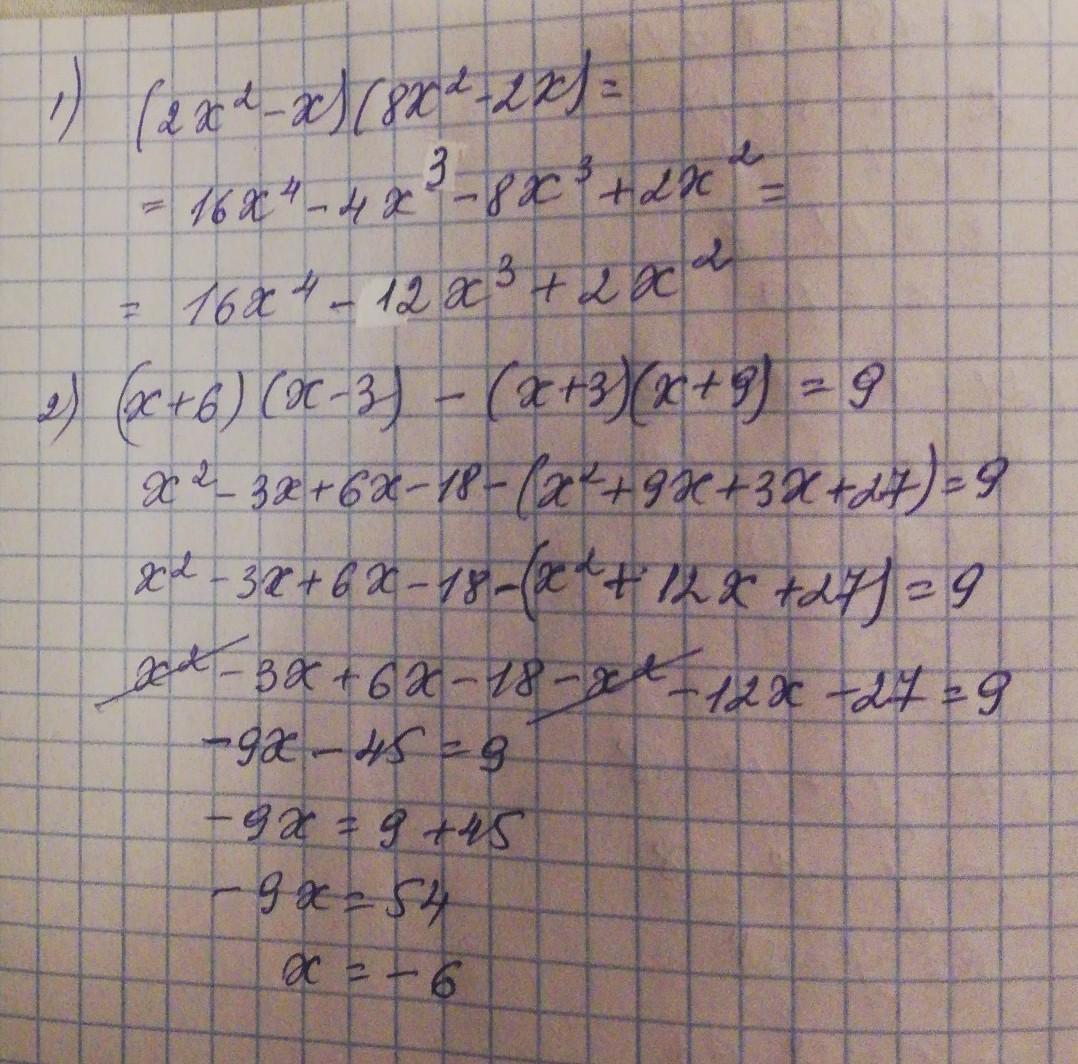 1) (2x² - x)(8x² - 2x) =
= 16x⁴ - 4x³ - 8x³ + 2x² =
= 16x⁴ - 12x³ + 2x²
2) (x+6)(x-3) - (x+3)(x+9) = 9
x² - 3x + 6x - 18 - (x² + 9x + 3x + 27) = 9
x² - 3x + 6x - 18 - (x² + 12x + 27) = 9
x² - 3x + 6x - 18 - x² - 12x - 27 = 9
-9x - 45 = 9
-9x = 9 + 45
-9x = 54
x = -6